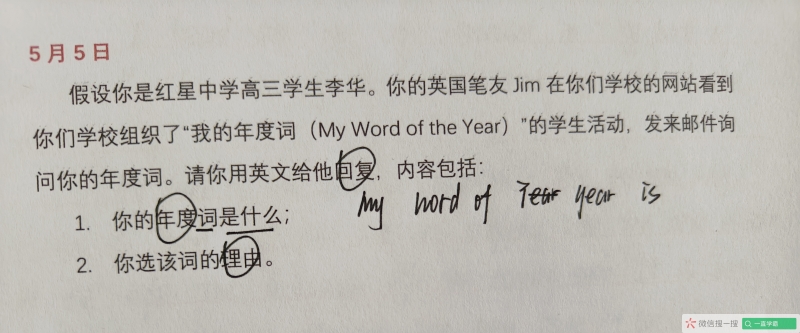 5月5日
假设你是红星中学高三学生李华。你的英国笔友 Jim 在你们学校的网站看到
你们学校组织了“我的年度词（My Word of the Year）”的学生活动，发来邮件询
问你的年度词。请你用英文给他回复，内容包括：
1. 你的年度词是什么；
My word of Year year is
2. 你选该词的理由。
微信搜一搜 一直学霸